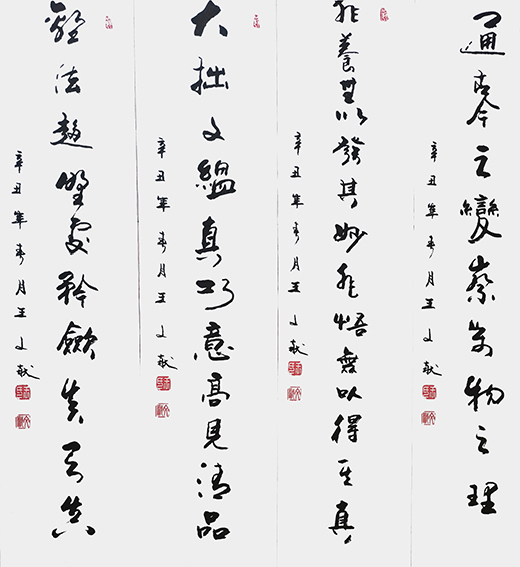 通古今之變察萬物之理
辛丑年春月王文献
非養無以發其妙非悟無以得其真
辛丑年春月王文献
大拙文緼真巧意高見清品
辛丑年春月王文献
法趣野處矜斂失天真
辛丑年春月王文献